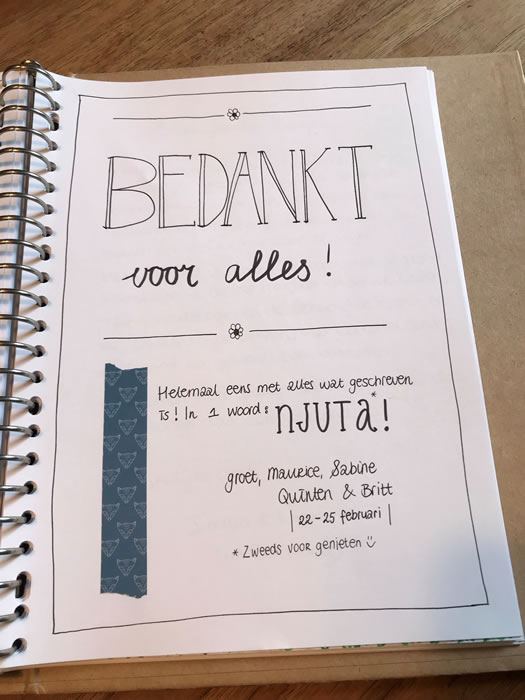 BEDANKT
voor alles!
Helemaal eens met alles wat geschreven
is! In 1 woord: NJUTA*!
groet, Maurice, Sabine
Quinten & Britt
| 22-25 februari |
* Zweeds voor genieten